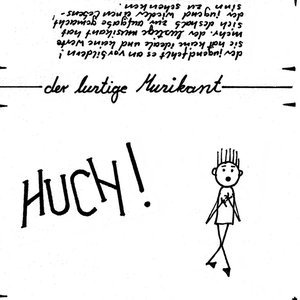 der jugend fehlt es an vorbildern!
sie hat keine ideale und keine werte
mehr. der lustige musikant hat
sich deshalb zur aufgabe gemacht
der jugend wieder einen lebens-
sinn zu schenken.
der lustige Musikant
HUCH!